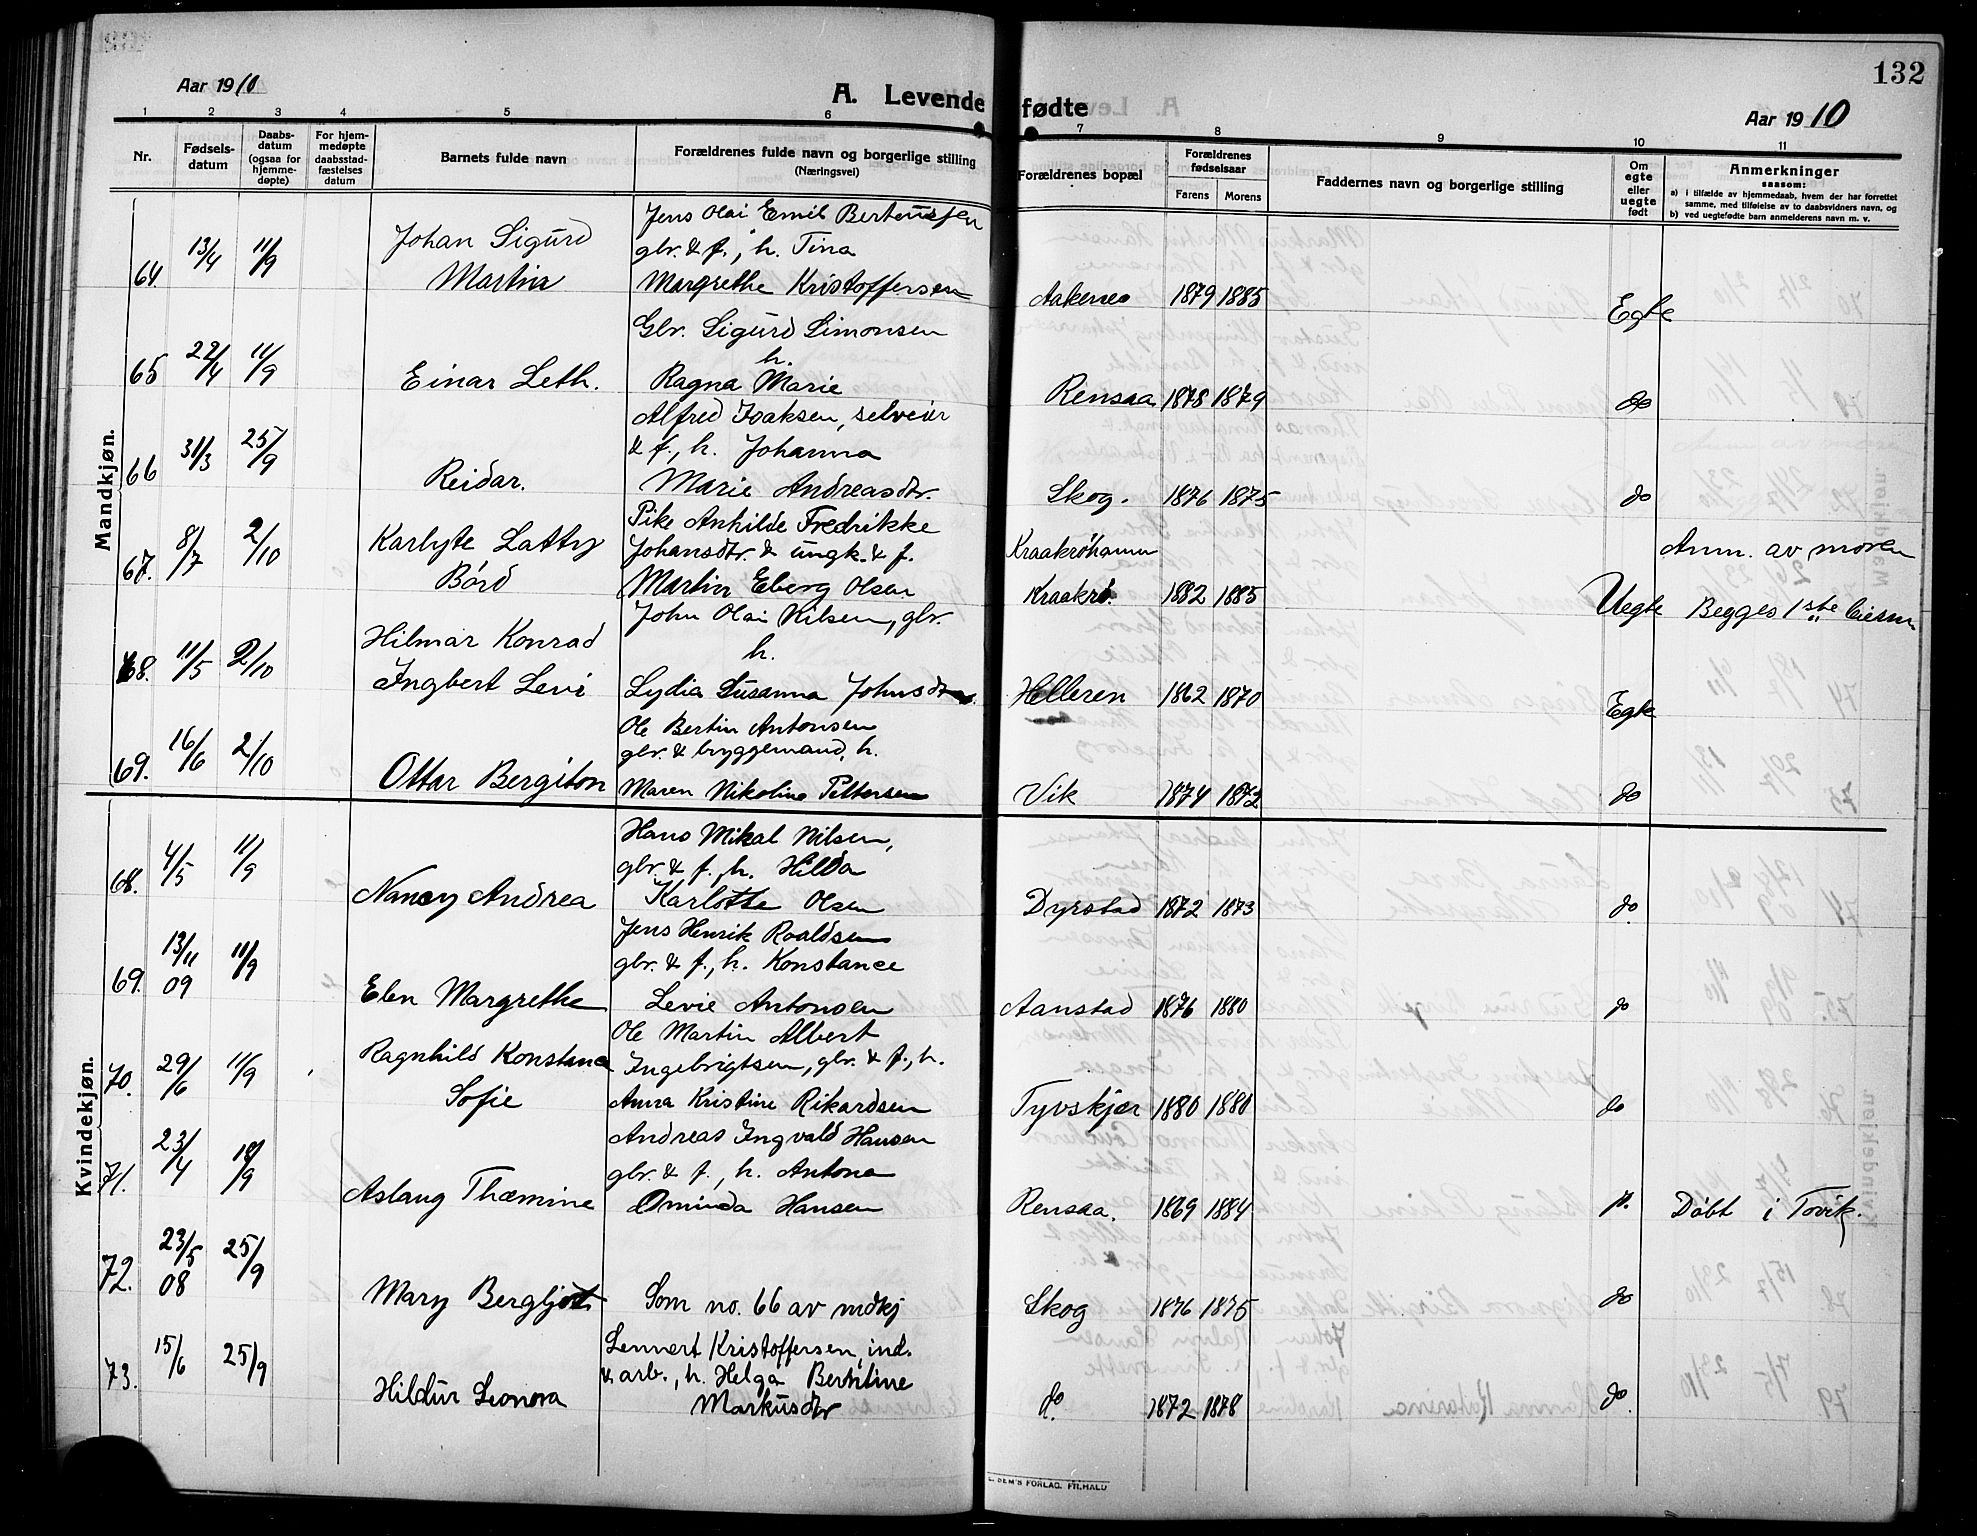 132
Aar 1910
A. Levende fødte
Aar 1910
1 2 3 4 5 6 7 8 9 10 11
Nr.
Fødsels-
datum
Daabs-
datum
(ogsaa for
hjemme-
døpte)
For hjem-
medøpte
daabsstad-
fæstelses
datum
Barnets fulde navn
Forældrenes fulde navn og borgerlige stilling
(Næringsvei)
Forældrenes bopæl
Forældrenes
fødselsaar
Farens Morens
Faddernes navn og borgerlige stilling
Om
egte
eller
uegte
født
Anmerkninger
saasom:
a) i tilfælde av hjemmedaab, hvem der har forrettet
samme, med tilføielse av to daabsvidners navn, og
b) ved uegtefødte barn anmelderens navn m. v.
Mandkjøn.
Jens Olai Emil Berteussen
Johan Sigurd glr. & f., h. Tina
64 13/4 11/9 Martin Margrethe Kristoffersen Aakernes 1879 1885 Egte
Glr. Sigurd Simonsen
h.
65 22/4 11/9 Einar Leth. Ragna Marie Rensaa 1878 1879 do
Alfred Isaksen, selveier
& f., h. Johanna
66 31/3 25/9 Reidar. Marie Andreasdtr. Skog. 1876 1875 do
Pike Anhilde Fredrikke
Karlyte Latty Johansdtr. & ungk. & f. Kraakrøhamn Anm. av moren
67. 8/7 2/10 Bórd Martin Eberg Olsen Kraakrø. 1882 1885 Uegte Begges 1ste
John Olai Nilsen, glr.
Hilmar Konrad h.
68. 11/5 2/10 Ingbert Levi Lydia Susanna Johnsdtr. Helleren 1862 1870 Egte
Ole Bertin Antonsen
glr. & bryggemand, h.
69. 16/6 2/10 Ottar Bergiton Maren Nikoline Pettersen Vik 1874 1872 do
Kvindekjøn.
Hans Mikal Nilsen,
glr. & f., h. Hilda
68. 4/5 11/9 Nancy Andrea Karlotte Olsen Dyrstad 1872 1873 do.
Jens Henrik Roaldsen
glr. & f., h. Konstance
69. 13/11 09 11/9 Elen Margrethe Levie Antonsen Aanstad 1876 1880 do
Ole Martin Albert
Ragnhild Konstance Ingebrigtsen, glr. & f., h.
70. 29/6 11/9 Sofie Anna Kristine Rikardsen Tyvskjær 1880 1880 do
Andreas Ingvald Hansen
glr. & f., h. Antona
71. 23/4 18/9 Aslaug Thæmine Ominda Hansen Rensaa. 1869 1884 do. Døbt i Tovik.
72. 23/5 08 25/9 Mary Bergljot Som no. 66 av mdkj Skog 1876 1875 do
Lennert Kristoffersen, ind.
& arb., h. Helga Berntine
73. 15/6 25/9 Hildur Leonora Markusdtr do 1872 1878 do.
SEM'S FORLAG, FR.HALD